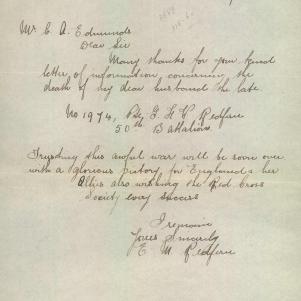 Mr C. A. Edmunds
Dear Sir
Many thanks for your kind
letter of information concerning the
death of my dear husband the late
No 1974, Pte G. H. V. Redfern
50th Battalion
Trusting this awful war will be soon over
with a glorious victory for England & her
Allies also wishing the Red Cross
Society every success
I remain
Yours Sincerely
E. M. Redfern